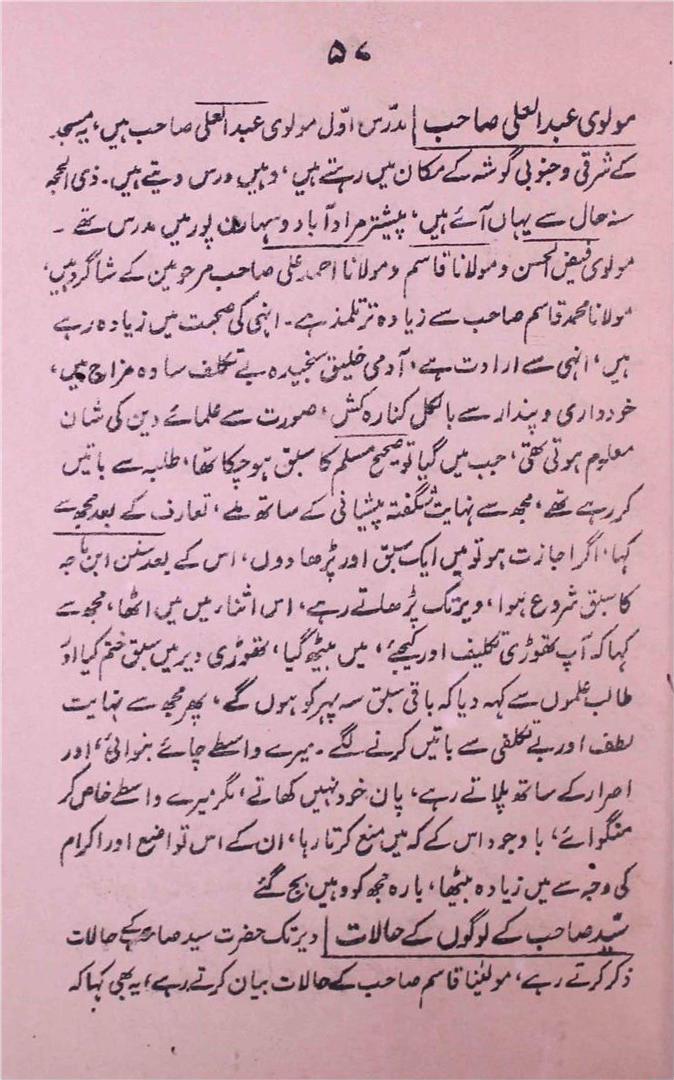 ۵۷
مولوی عبدالعلی صاحب | مدرّس اوّل مولوی عبدالعلی صاحب ہیں، یہ مسجد
کے شرقی وجنوبی گوشہ کے مکان میں رہتے ہیں، وہیں درس دیتے ہیں۔ ذی الحجہ
سنہ حال سے یہاں آئے ہیں، پیشتر مرادآباد و سہارن پور میں مدرس تھے۔
مولوی فیض الحسن ومولانا قاسم ومولانا احمد علی صاحب مرحومین کے شاگرد ہیں،
مولانا محمد قاسم صاحب سے زیادہ تر تلمذ ہے۔ انہی کی صحبت میں زیادہ رہے
ہیں، انہی سے ارادت ہے، آدمی خلیق سنجیدہ بے تکلف سادہ مزاج ہیں،
خودداری و پندار سے بالکل کنارہ کش، صورت سے علمائے دین کی شان
معلوم ہوتی تھی، جب میں گیا تو صحیح مسلم کا سبق ہوچکا تھا، طلبہ سے باتیں
کررہے تھے، مجھ سے نہایت شگفتہ پیشانی کے ساتھ ملے، تعارف کے بعد مجھ سے
کہا، اگر اجازت ہو تو میں ایک سبق اور پڑھادوں، اس کے بعد سنن ابن ماجہ
کا سبق شروع ہوا، دیر تک پڑھاتے رہے، اس اثناء میں میں اٹھا، مجھ سے
کہا کہ آپ تھوڑی تکلیف اور کیجئے، میں بیٹھ گیا، تھوڑی دیر میں سبق ختم کیا اور
طالب علموں سے کہہ دیا کہ باقی سبق سہ پہر کو ہوں گے، پھر مجھ سے نہایت
لطف اور بے تکلفی سے باتیں کرنے لگے۔ میرے واسطے چائے بنوائی، اور
اصرار کے ساتھ پلاتے رہے، پان خود نہیں کھاتے، مگر میرے واسطے خاص کر
منگوائے، باوجود اس کے کہ میں منع کرتا رہا، ان کے اس تواضع اور اکرام
کی وجہ سے میں زیادہ بیٹھا، بارہ مجھ کو وہیں بج گئے
سیّد صاحب کے لوگوں کے حالات | دیر تک حضرت سید صاحب کے حالات
ذکر کرتے رہے، مولٰینا قاسم صاحب کے حالات بیان کرتے رہے، یہ بھی کہا کہ